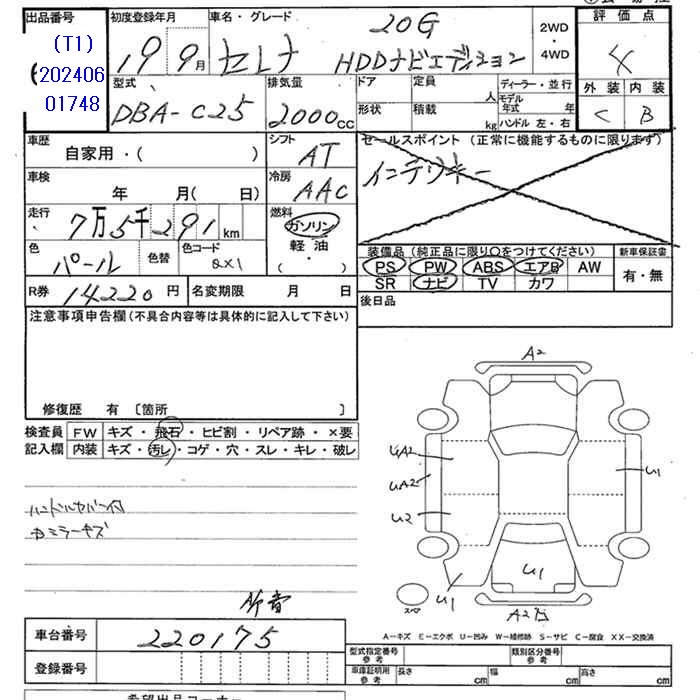 出品番号
(T1)
202406
01748
初度登録年月
19年 9月
車名・グレード
セレナ 20G
HDDナビエディション
2WD
・
4WD
評価点
4
外装 内装
C B
型式
DBA-C25
排気量
2000cc
ドア 定員 人
形状 積載 kg
ディーラー・並行
モデル年式 年
ハンドル 左・右
車歴
自家用・( )
シフト
AT
セールスポイント (正常に機能するものに限ります)
インテリキー
車検
年 月( 日)
冷房
AAC
走行
7万5千291km
燃料
ガソリン
軽油
( ・ )
色
パール
色替
色コード
QX1
装備品 (純正品に限り○をつけてください)
PS PW ABS エアB AW
SR ナビ TV カワ
新車保証書
有・無
R券 14220円
名変期限 月 日
後日品
注意事項申告欄(不具合内容等は具体的に記入して下さい)
修復歴 有 〔箇所 〕
検査員 FW キズ・飛石・ヒビ割・リペア跡・×要
記入欄 内装 キズ・汚レ・コゲ・穴・スレ・キレ・破レ
ハンドルカバー付
カミラーキズ
A2
UA2
UA2
U2
U1
U1
U1
スペア
A-キズ E-エクボ U-凹み W-補修跡 S-サビ C-腐食 XX-交換済
車台番号 220175
登録番号
型式指定番号 参考
類別区分番号 参考
車庫証明用 参考 長さ cm 幅 cm 高さ cm
希望出品コーナー